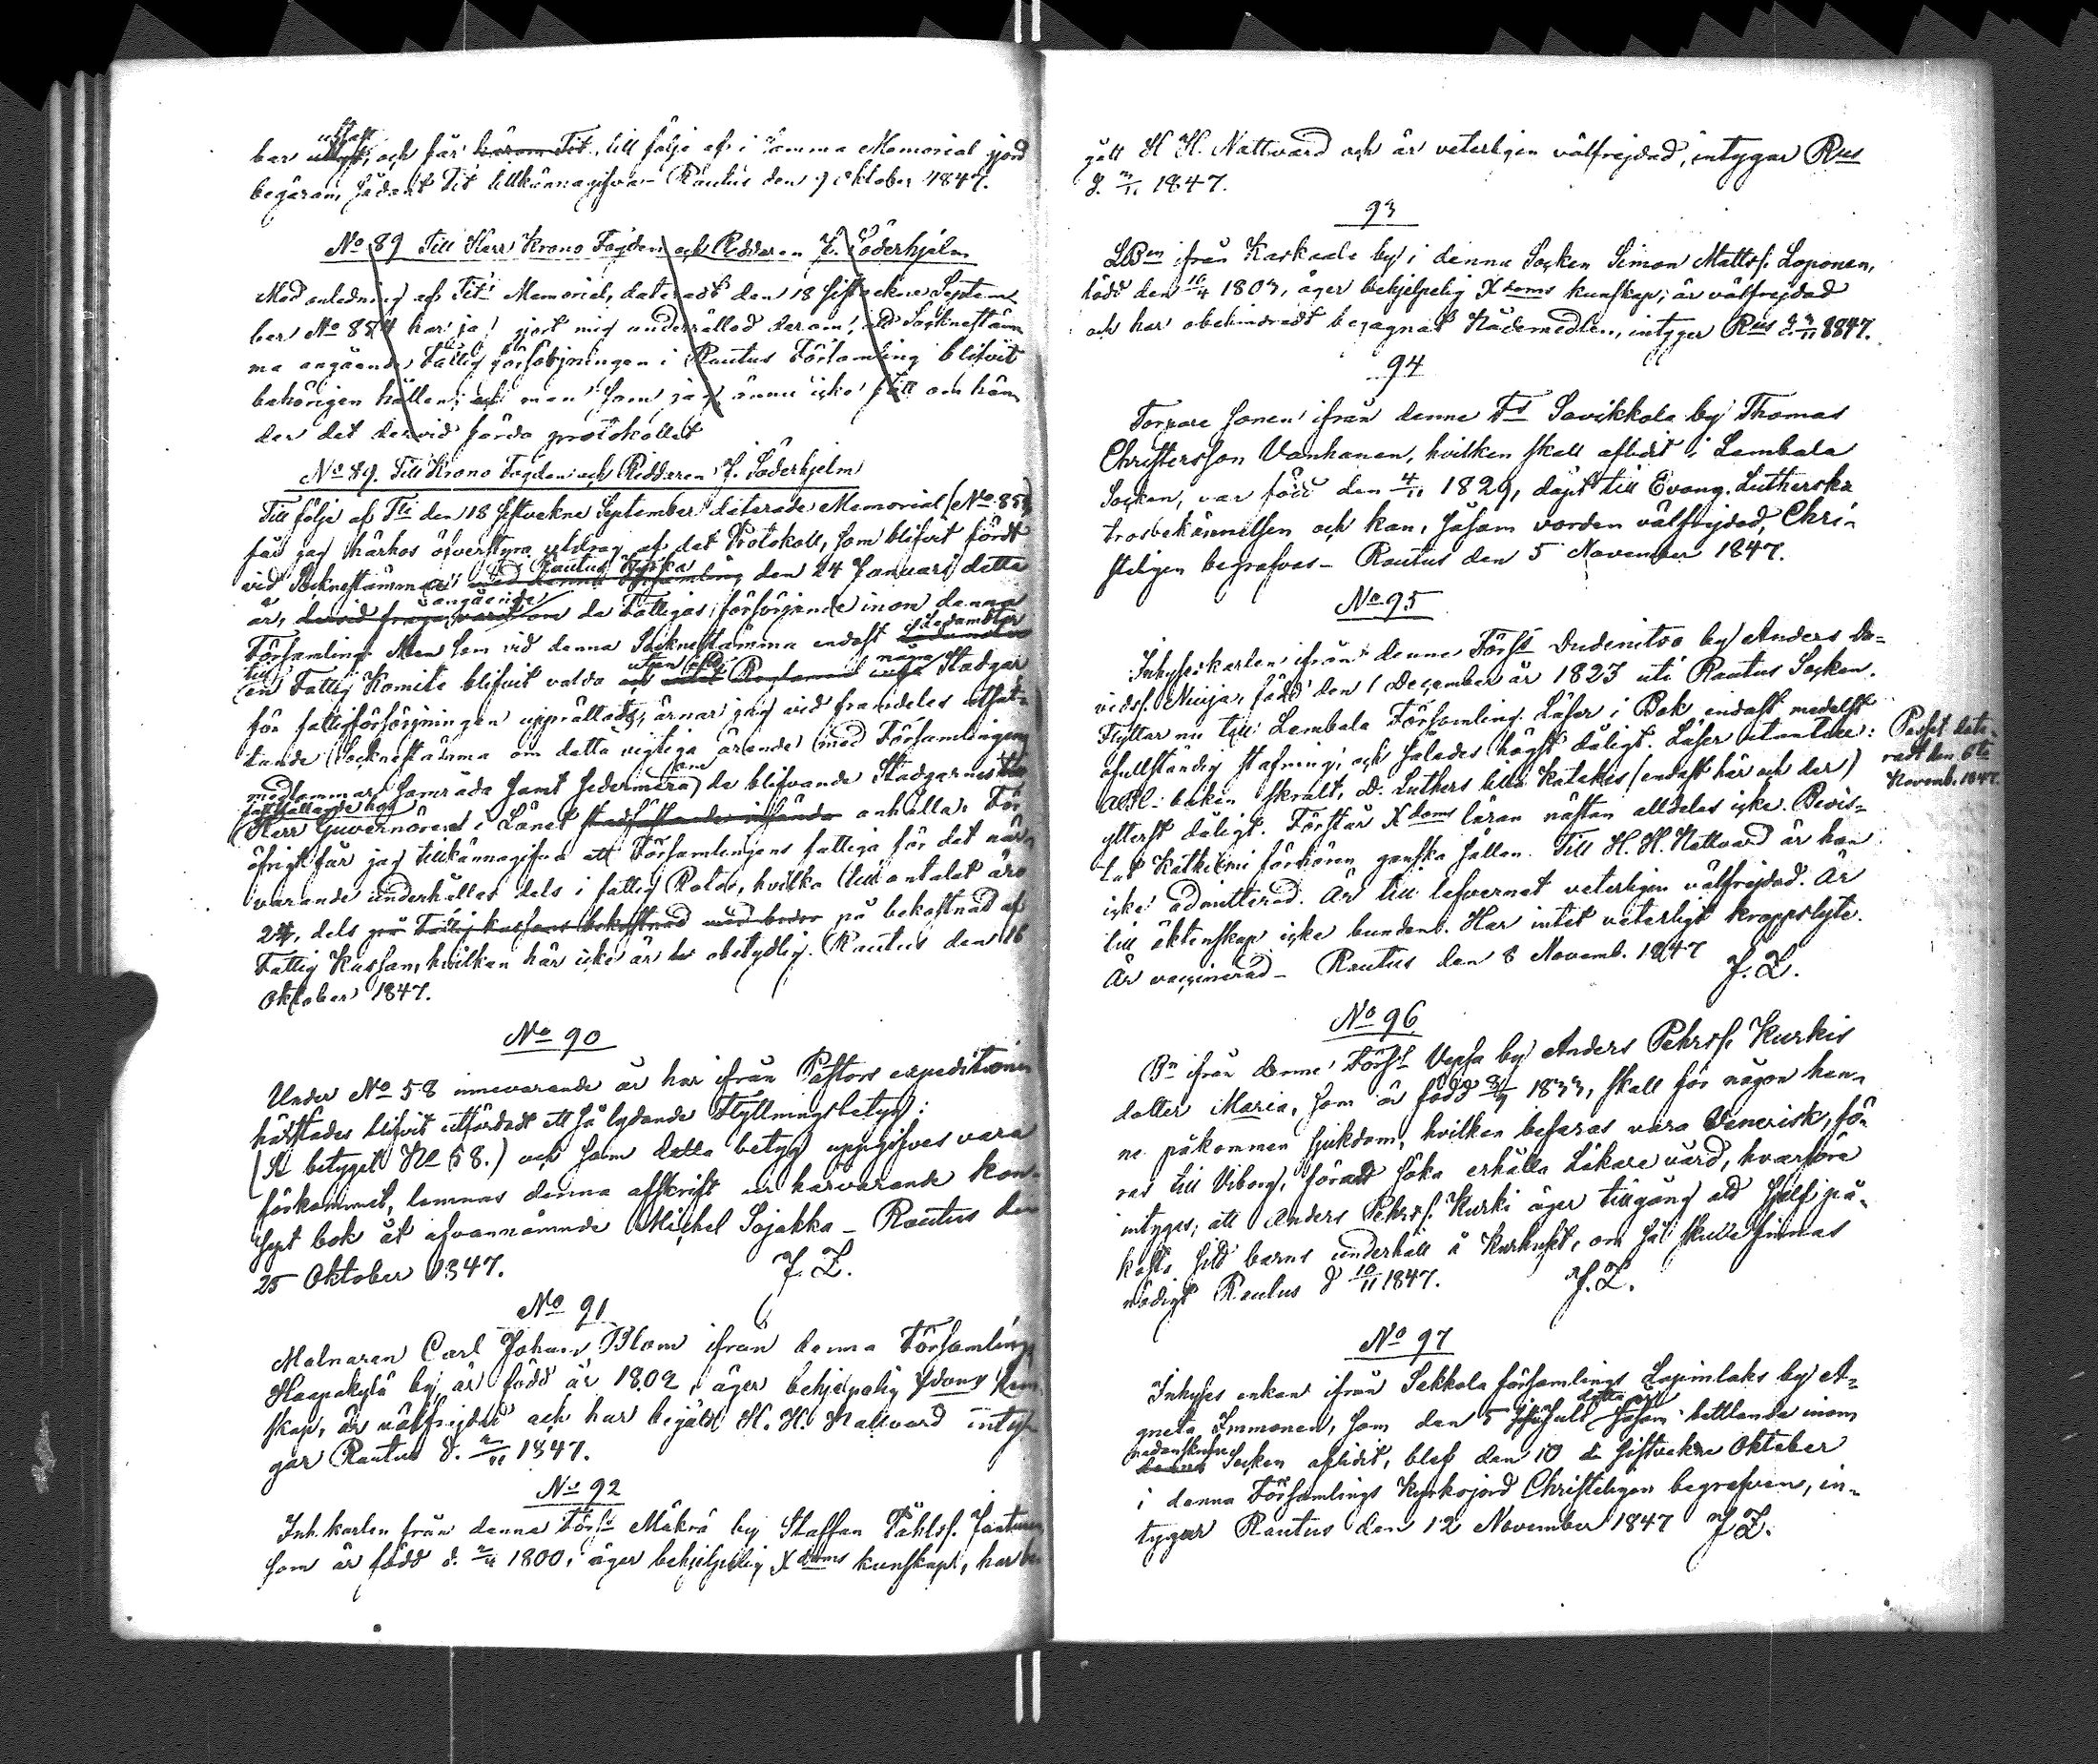 utsatt
ber utsatt, och får härom Tit. till följe af i samma Memorial gjord
begäran, sådant Tit tillkännagifva – Rautus den 9 Oktober 1847.
No 89 Till Herr Krono Fogden och Riddaren J. Söderhjelm
Med anledning af Tits Memorial, dateradt den 18 sistvekne Septem-
ber No 854 har jag gjort mig underrättad derom, att Socknestäm
ma angående Fattig försörjningen i Rautus Församling blifvit
behörigen hållen; men som jag ännu icke fått om hän
der det dervid förda protokollet
No 89. Till Krono Fogden och Riddaren J. Söderhjelm
Till följe af Tits den 18 sistvekne September daterade Memorial (No 854)
får jag härhos öfverstyra utdrag af det Protokoll, som blifvit fördt
Rautus Kyrka
vid Socknestämman i med denna Församling den 24 Januari detta
angående
år, dervid fråga varit om de Fattigas försörjande inom denna
Ledamöter
Församling. Men som vid denna Socknestämma endast Ledamöter
till utan att några
en Fattig Komité blifvit valda och Reglement Stadgar
för fattigförsörjningen upprättats, ärnar jag vid framdeles utsät-
tande Socknestämma om detta vigtiga ärende med Församlingens
om
medlemmar samråda samt sedermera de blifvande Stadgarnes
fastställande hos
Herr Guvernören i Länet stadfästande anhålla. För
öfrigt får jag tillkännagifva att Församlingens fattiga för det när-
varande underhålles dels i fattig Rotar, hvilka till antalet äro
24, dels på Fattig kassans bekostnad på bekostnad af
Fattig Kassan, hvilken här icke är obetydlig. Rautus den 16
Oktober 1847.
No 90
Under No 58 innevarande år har ifrån Pastors expeditionen
härstädes blifvit utfärdadt ett så lydande Flyttningsbetyg:
(Se betyget No 58.) och som detta betyg uppgifves vara
förkommet, lemnas denna afskrift ur härvarande Kon-
sept bok åt ofvannämnde Michel Sojakka – Rautus den
25 Oktober 1847. J. Z.
No 91
Molnaren Carl Johan Blom ifrån denna Församlings
Haapakylä by, är född år 1802, äger behjelpelig Xdoms kun
skap, är välfrejdad och har begått H. H. Nattvard inty-
gar Rautus d. 1847.
No 92
Inh. karlen från denna Förs:s Mäkrä by Staffan Påhlss. Jantunen
som är född d. 1800, äger behjelpelig Xdoms kunskap, har be
gått H H. Nattvard och är veterligen välfrejdad, intygar Rus
d. 1847.
93
LBn ifrån Kaskaala by i denna Socken Simon Mattss. Loponen,
född den 10/4 1803, äger behjelpelig Xdoms kunskap; är välfrejdad
och har obehindradt begagnat Nådemedlen, intygar Rus d. 1847.
94
Torpare sonen ifrån denne Fs Savikkola by Thomas
Christersson Vanhanen, hvilken skall aflidit i Lembala
Socken, var född den 4/11 1829, döpt till Evang. Lutherska
trosbekännelsen och kan, såsom vorden välfrejdad, Chri-
steligen begrafvas – Rautus den 5 November 1847.
No 95
Inhyses karlen ifrån denne Förs:s Dudenitso by Anders Da-
vidss. Niuja, född den 1 December år 1823 uti Rautus Socken.
Flyttar nu till Lembala Församling. Läser i Bok endast medelst
ofullständig stafning; och således högst dåligt. Läser utantill:
Passet date-
radt den 6te
Novemb. 1847.
ABC-boken skralt, D. Luthers lilla Katekes (endast här och der)
ytterst dåligt. Förstår Xdoms läran nästan alldeles icke. Bevis-
tat Katkismi förhören ganska sällan. Till H. H. Nattvard är han
icke admitterad. Är till lefvernet veterligen välfrejdad. Är
till äktenskap icke bunden. Har intet veterligt kroppslyte.
Är vaccinerad – Rautus den 8 Novemb. 1847 J. Z.
No 96
Bn ifrån denne Förs:s Vepsa by Anders Pehrss. Kurkis
dotter Maria, som är född 1833, skall för någon hen-
ne påkommen sjukdom, hvilken befaras vara Venerisk, fö-
ras till Viborg, för att söka erhålla Läkare vård, hvarföre
intygas, att Anders Pehrss. Kurki äger tillgång att sjelf på-
kosta sitt barns underhåll å Kurhuset, om så skulle finnas
nödigt Rautus d 10/11 1847. J. Z.
No 97
Inhyses enkan ifrån Sakkola församlings Lapinlaks by A-
detta år
gneta Immonen, som den 5 såsom bettlande inom
nedanskrifne
denna Socken aflidit, blef den 10 sistvekne Oktober
i denna Församlings Kyrkojord Christeligen begrafven, in-
tygar Rautus den 12 November 1847 J Z.